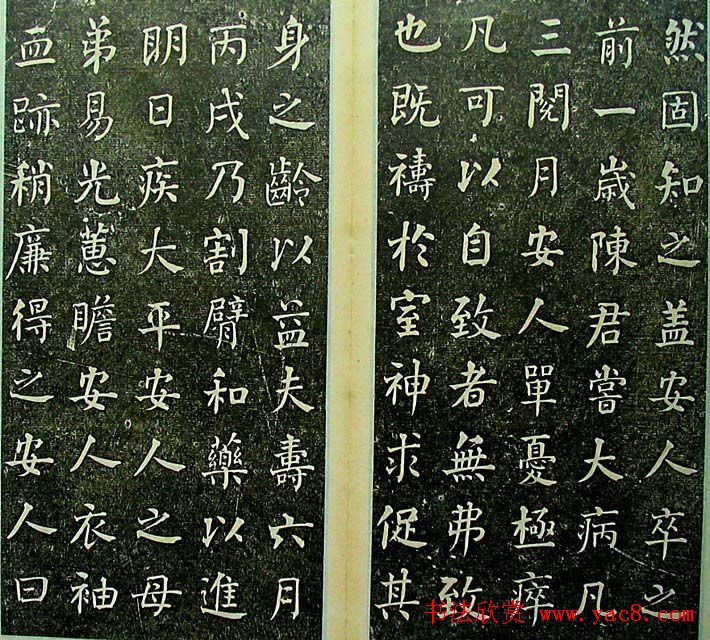 然固知之盖安人卒之
前一歲陳君嘗大病凡
三閱月安人單憂極瘁
凡可以自致者無弗致
也既禱於室神求促其
身之齡以益夫壽六月
丙戌乃割臂和藥以進
明日疾大平安人之母
弟易光蕙瞻安人衣袖
血跡稍廉得之安人曰
书法欣赏 www.yac8.com